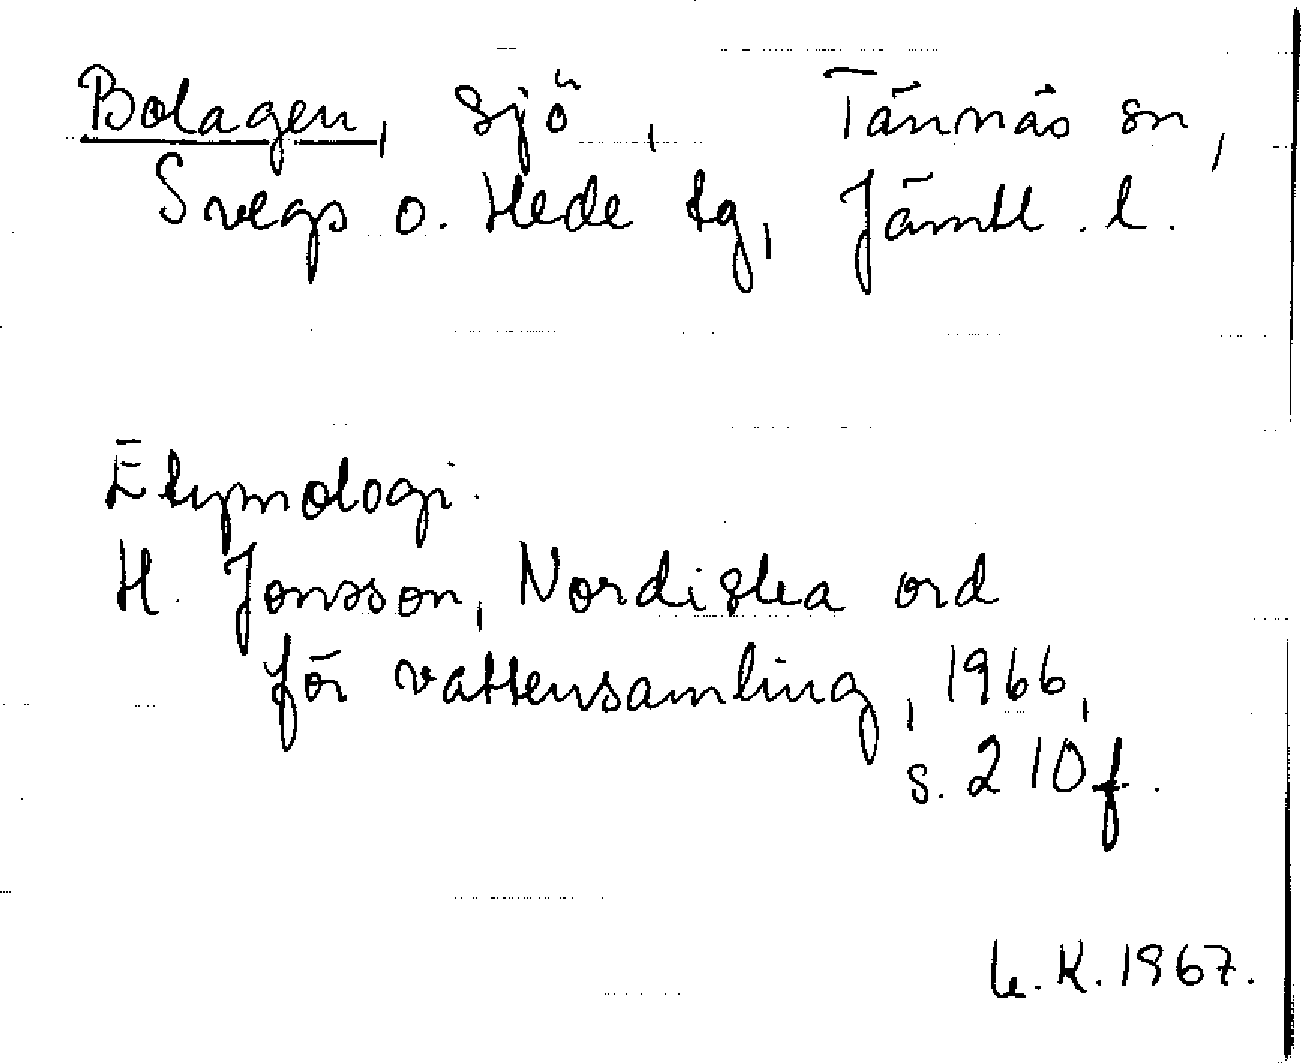 Bolagen, sjö, Tännäs sn,
Svegs o. Hede tg, Jämtl. l.
Etymologi.
H. Jonsson, Nordiska ord
för vattensamling, 1966,
s. 210f.
K. 1967.